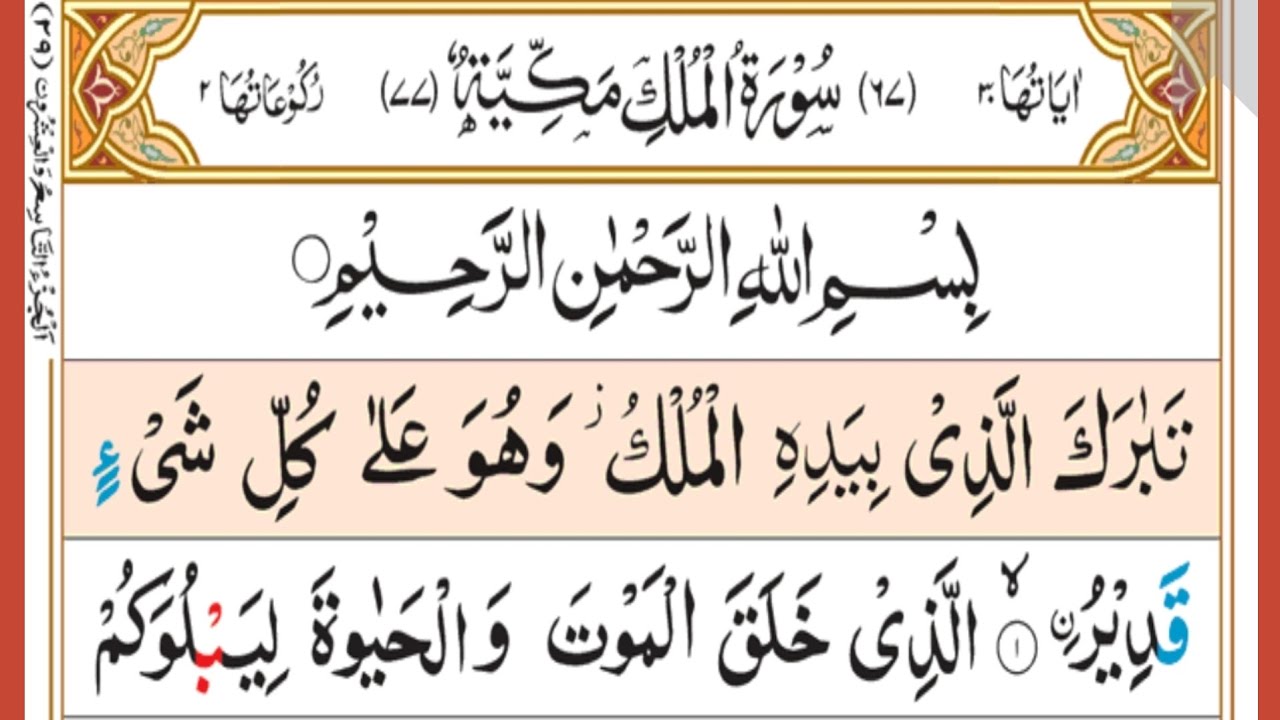 اٰيَاتُهَا ٣٠ (٦٧) سُوْرَةُ الْمُلْكِ مَكِّيَّةٌ (٧٧) رُكُوْعَاتُهَا ٢
بِسْمِ اللّٰهِ الرَّحْمٰنِ الرَّحِيْمِ
تَبٰرَكَ الَّذِىْ بِيَدِهِ الْمُلْكُ ز وَهُوَ عَلٰى كُلِّ شَىْءٍ
قَدِيْرُ ۨ ۙ ١ الَّذِىْ خَلَقَ الْمَوْتَ وَالْحَيٰوةَ لِيَبْلُوَكُمْ
اَلْجُزْءُ التَّاسِعُ وَالْعِشْرُوْنَ (٢٩)